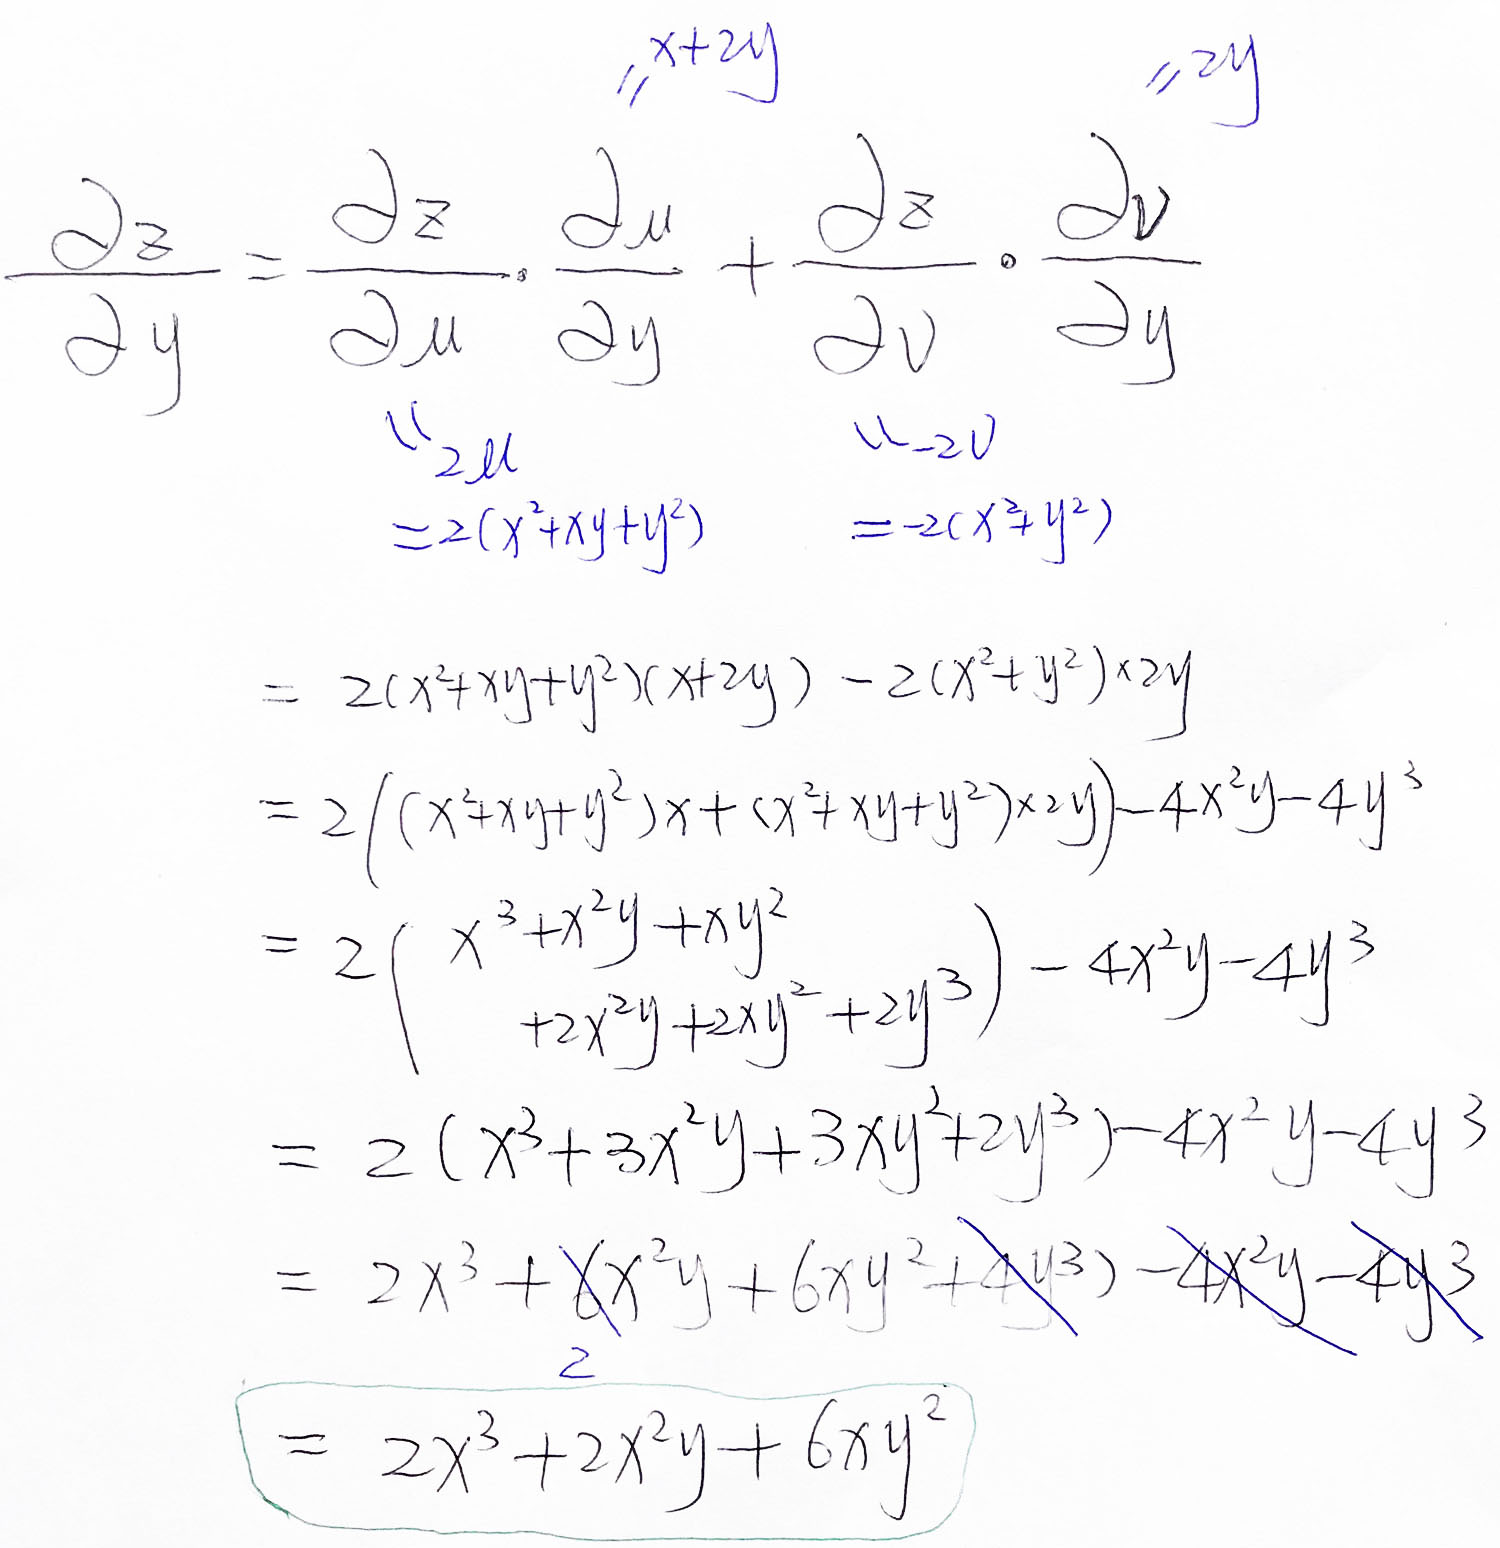 ∥ x+2y ∥ 2y
∂z/∂y = ∂z/∂u · ∂u/∂y + ∂z/∂v · ∂v/∂y
∥ 2u ∥ -2v
=2(x²+xy+y²) =-2(x²+y²)
= 2(x²+xy+y²)(x+2y) - 2(x²+y²)×2y
= 2((x²+xy+y²)x+(x²+xy+y²)×2y)-4x²y-4y³
= 2( x³+x²y+xy²
+2x²y+2xy²+2y³ ) - 4x²y-4y³
= 2(x³+3x²y+3xy²+2y³)-4x²y-4y³
= 2x³+6x²y+6xy²+4y³)-4x²y-4y³
2
= 2x³+2x²y+6xy²